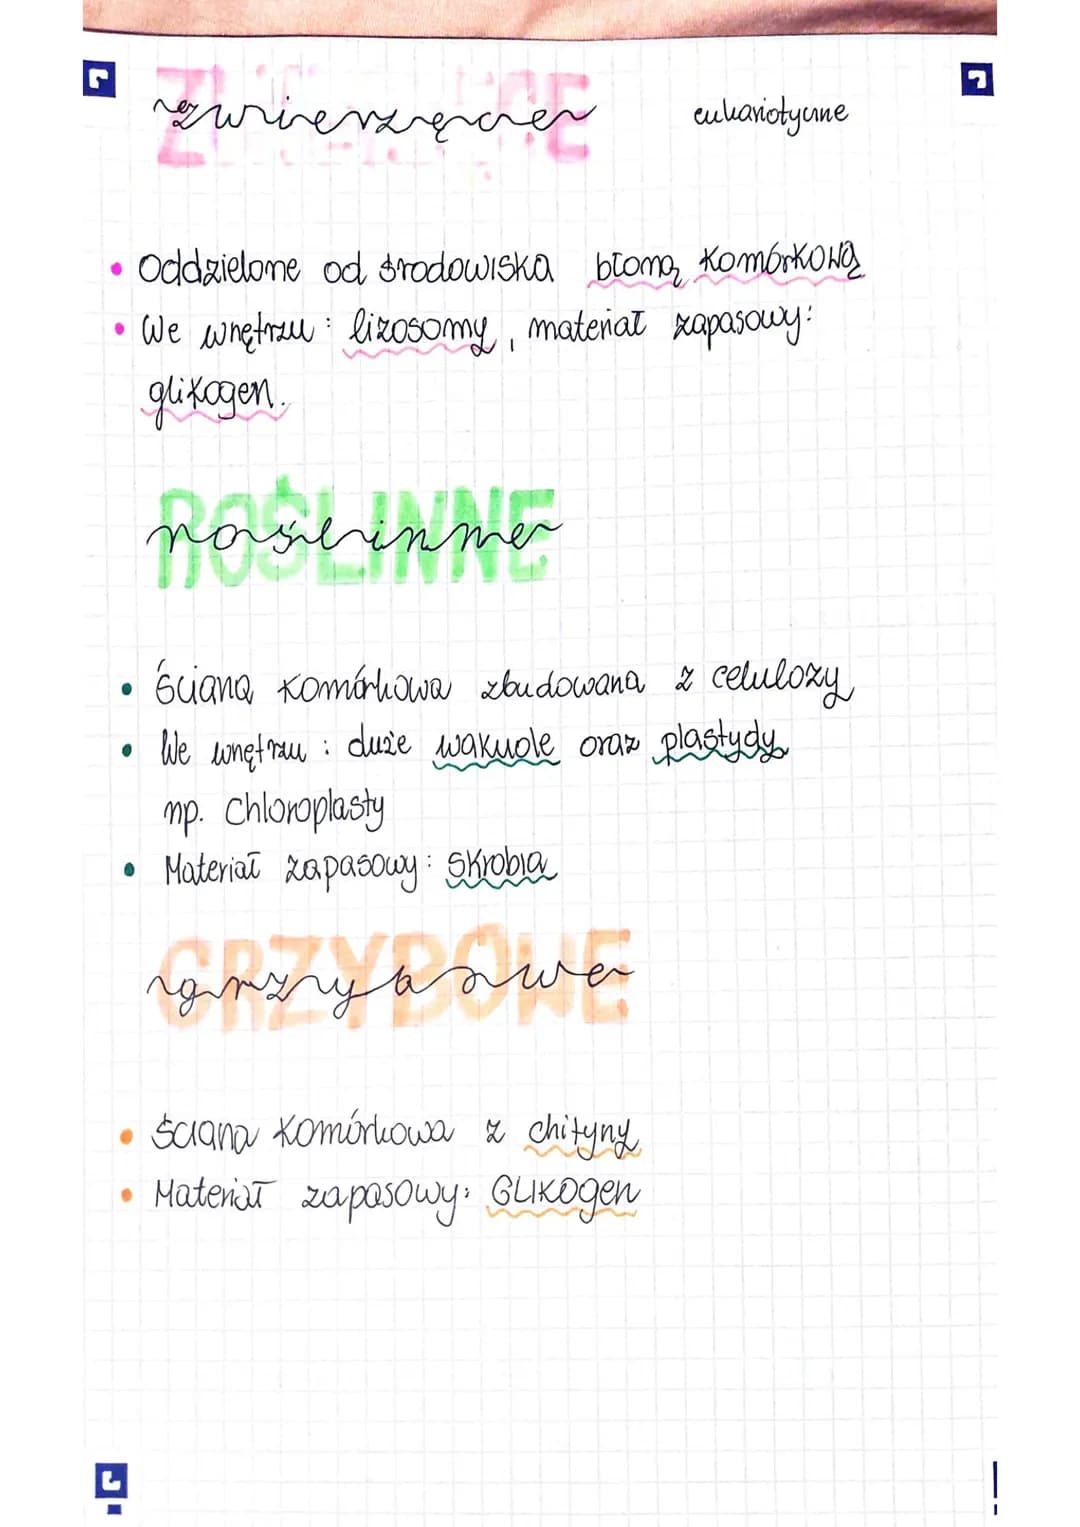 ZWIERZĘCE
zwierzęce eukariotyczne
• Oddzielone od środowiska błoną komórkową
• We wnętrzu : lizosomy, materiał zapasowy:
glikogen.
ROŚLINNE
roślinne
• Ściana komórkowa zbudowana z celulozy
• We wnętrzu : duże wakuole oraz plastydy
np. Chloroplasty
• Materiał zapasowy : Skrobia
GRZYBOWE
grzybowe
• Ściana komórkowa z chityny
• Materiał zapasowy: GLIKOgen